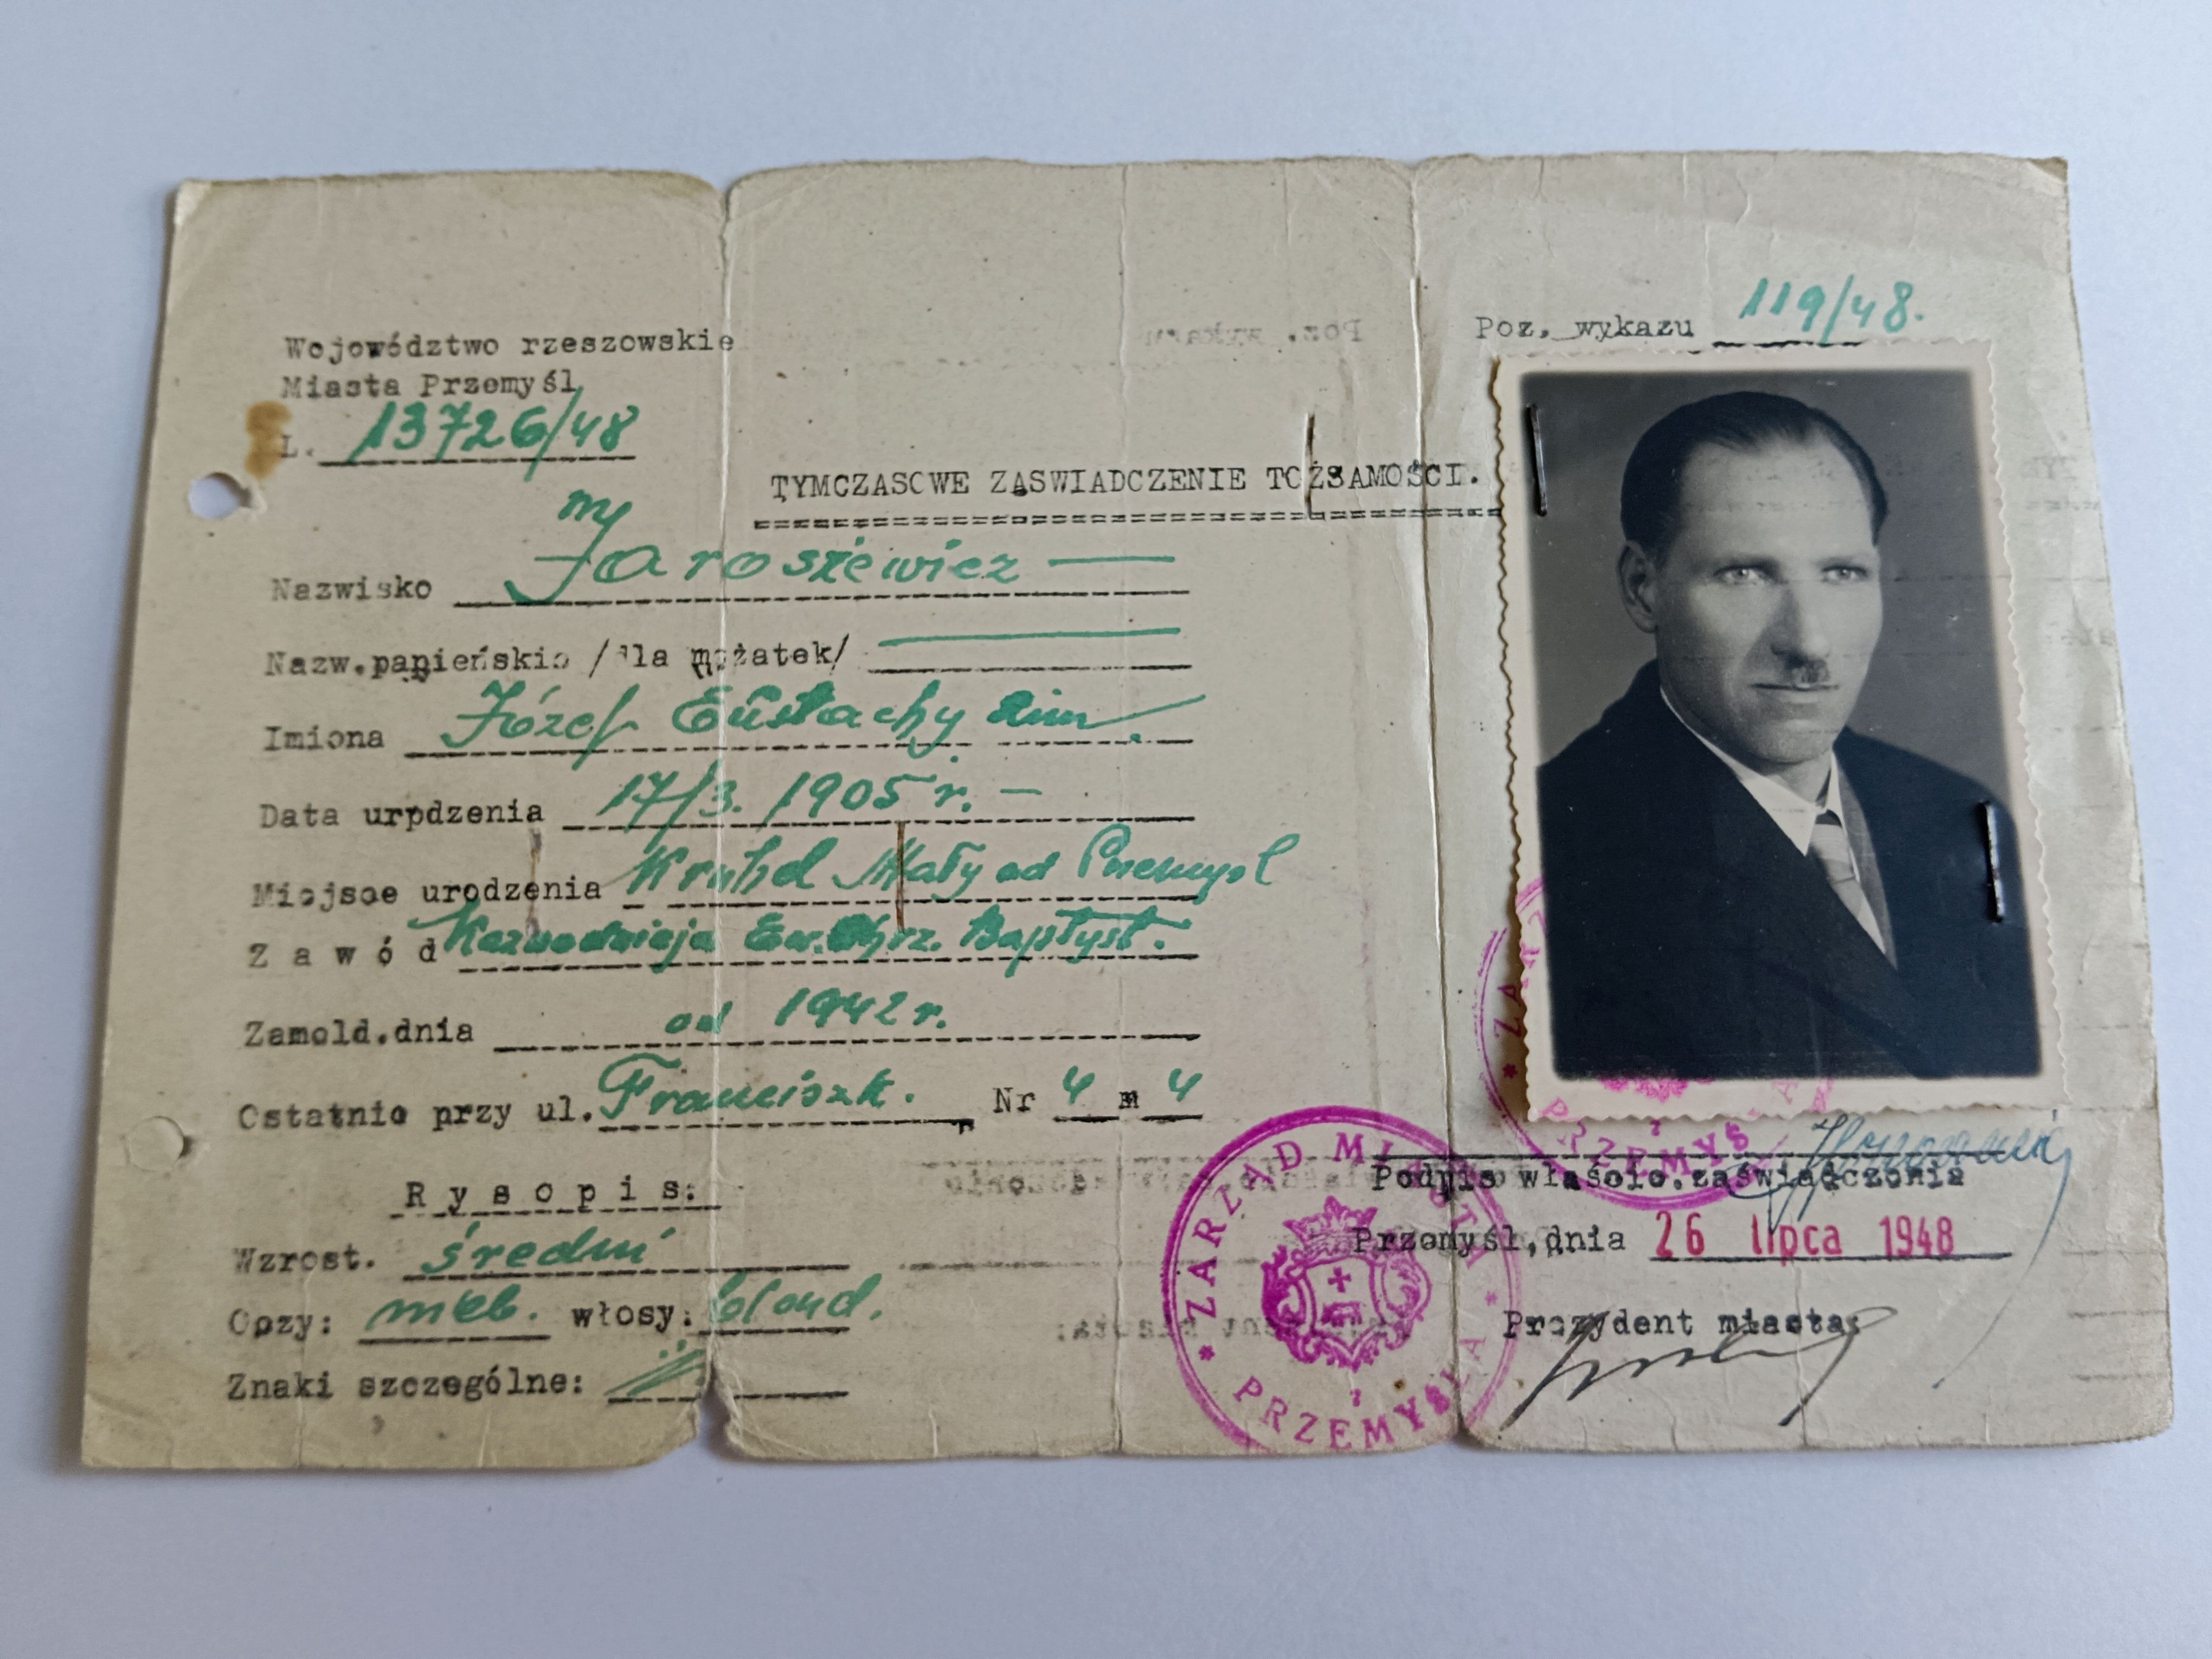 Województwo rzeszowskie
Miasta Przemyśl
L. 13726/48
Poz. wykazu 119/48.
TYMCZASOWE ZAŚWIADCZENIE TOŻSAMOŚCI.
Nazwisko Jaroszewicz
Nazw.panieńskie /dla mężatek/
Imiona Józef Eustachy
Data urodzenia 17/3. 1905 r. —
Miejsce urodzenia Kruhel Mały ad Przemyśl
Z a w ó d Kaznodzieja Ew. Chrz. Baptyst.
Zameld.dnia od 1942 r.
Ostatnio przy ul. Franciszk. Nr 4 m 4
R y s o p i s:
Wzrost. średni
Oczy: nieb. włosy: blond.
Znaki szczególne:
ZARZĄD MIASTA
PRZEMYŚLA
Podpis właścic.zaświadczenia
Przemyśl,dnia 26 lipca 1948
Prezydent miasta: